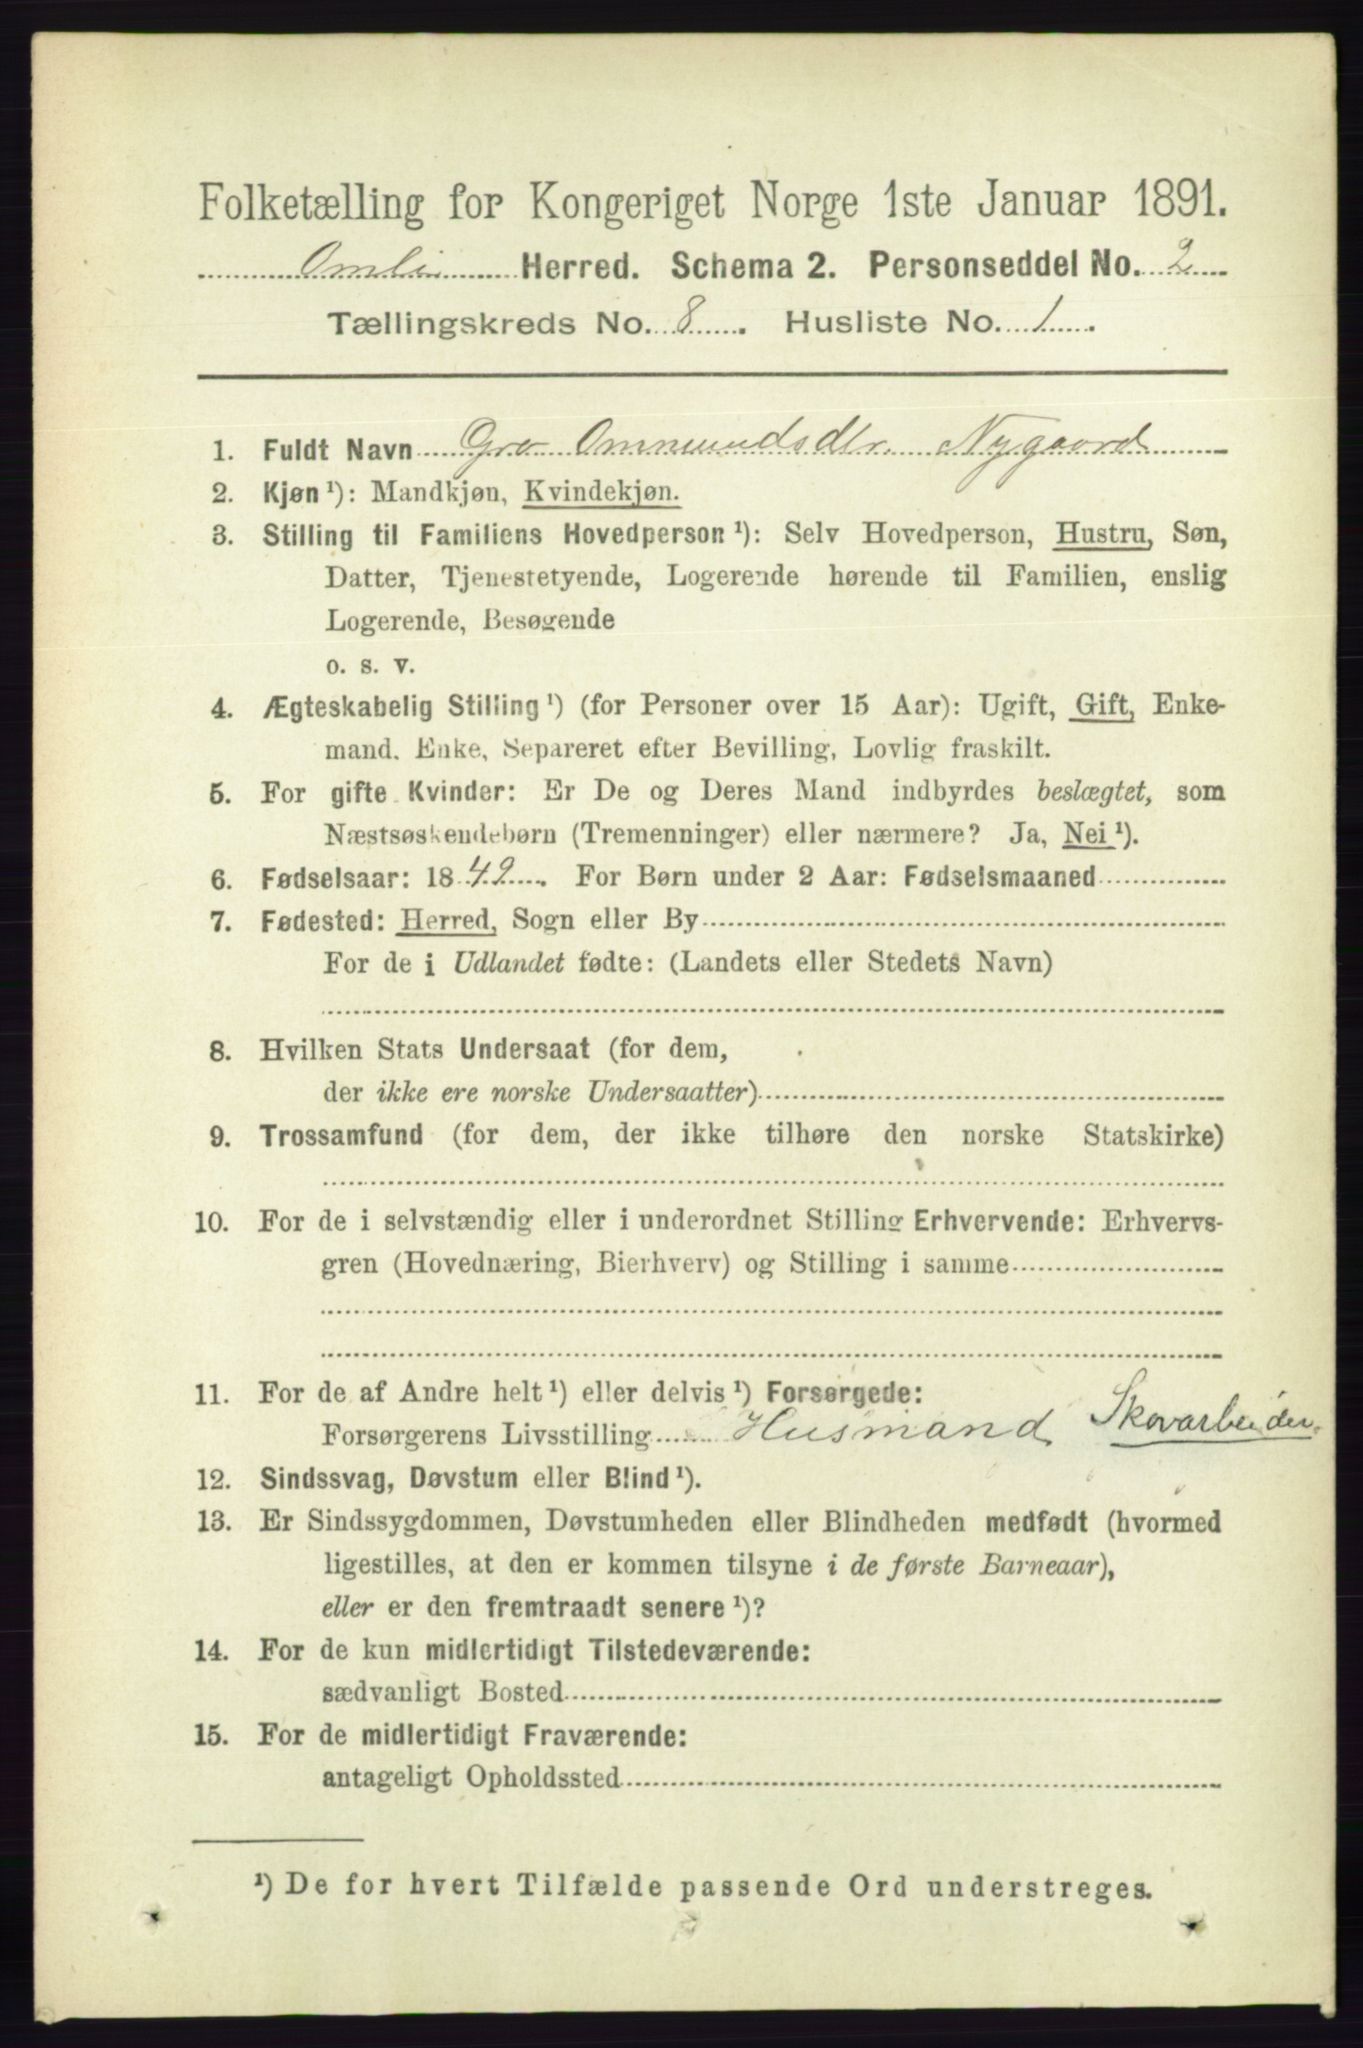 Folketælling for Kongeriget Norge 1ste Januar 1891.
Omli Herred. Schema 2. Personseddel No. 2
Tællingskreds No. 8. Husliste No. 1.
1. Fuldt Navn Gro Ommundsdtr. Nygaard
2. Kjøn ¹): Mandkjøn, Kvindekjøn.
3. Stilling til Familiens Hovedperson ¹): Selv Hovedperson, Hustru, Søn,
Datter, Tjenestetyende, Logerende hørende til Familien, enslig
Logerende, Besøgende
o. s. v.
4. Ægteskabelig Stilling ¹) (for Personer over 15 Aar): Ugift, Gift, Enke-
mand, Enke, Separeret efter Bevilling, Lovlig fraskilt.
5. For gifte Kvinder: Er De og Deres Mand indbyrdes beslægtet, som
Næstsøskendebørn (Tremenninger) eller nærmere? Ja, Nei ¹).
6. Fødselsaar: 1842. For Børn under 2 Aar: Fødselsmaaned
7. Fødested: Herred, Sogn eller By
For de i Udlandet fødte: (Landets eller Stedets Navn)
8. Hvilken Stats Undersaat (for dem,
der ikke ere norske Undersaatter)
9. Trossamfund (for dem, der ikke tilhøre den norske Statskirke)
10. For de i selvstændig eller i underordnet Stilling Erhvervende: Erhvervs-
gren (Hovednæring, Bierhverv) og Stilling i samme
11. For de af Andre helt ¹) eller delvis ¹) Forsørgede:
Forsørgerens Livsstilling Husmand, Skovarbeider.
12. Sindssvag, Døvstum eller Blind ¹).
13. Er Sindssygdommen, Døvstumheden eller Blindheden medfødt (hvormed
ligestilles, at den er kommen tilsyne i de første Barneaar),
eller er den fremtraadt senere ¹)?
14. For de kun midlertidigt Tilstedeværende:
sædvanligt Bosted
15. For de midlertidigt Fraværende:
antageligt Opholdssted
¹) De for hvert Tilfælde passende Ord understreges.